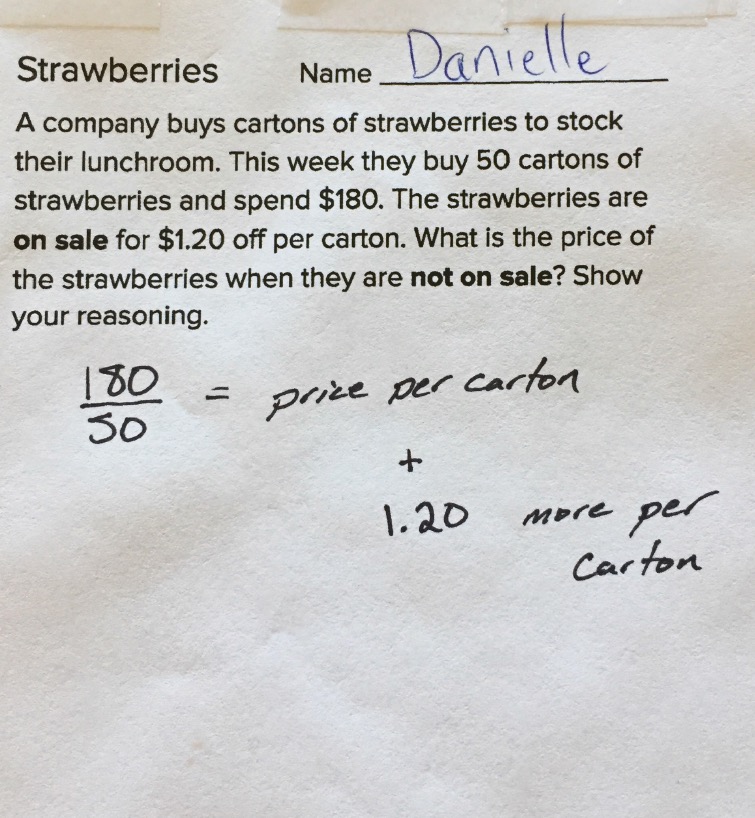 Strawberries Name Danielle
A company buys cartons of strawberries to stock
their lunchroom. This week they buy 50 cartons of
strawberries and spend $180. The strawberries are
on sale for $1.20 off per carton. What is the price of
the strawberries when they are not on sale? Show
your reasoning.
180
50
= price per carton
+
1.20 more per
carton